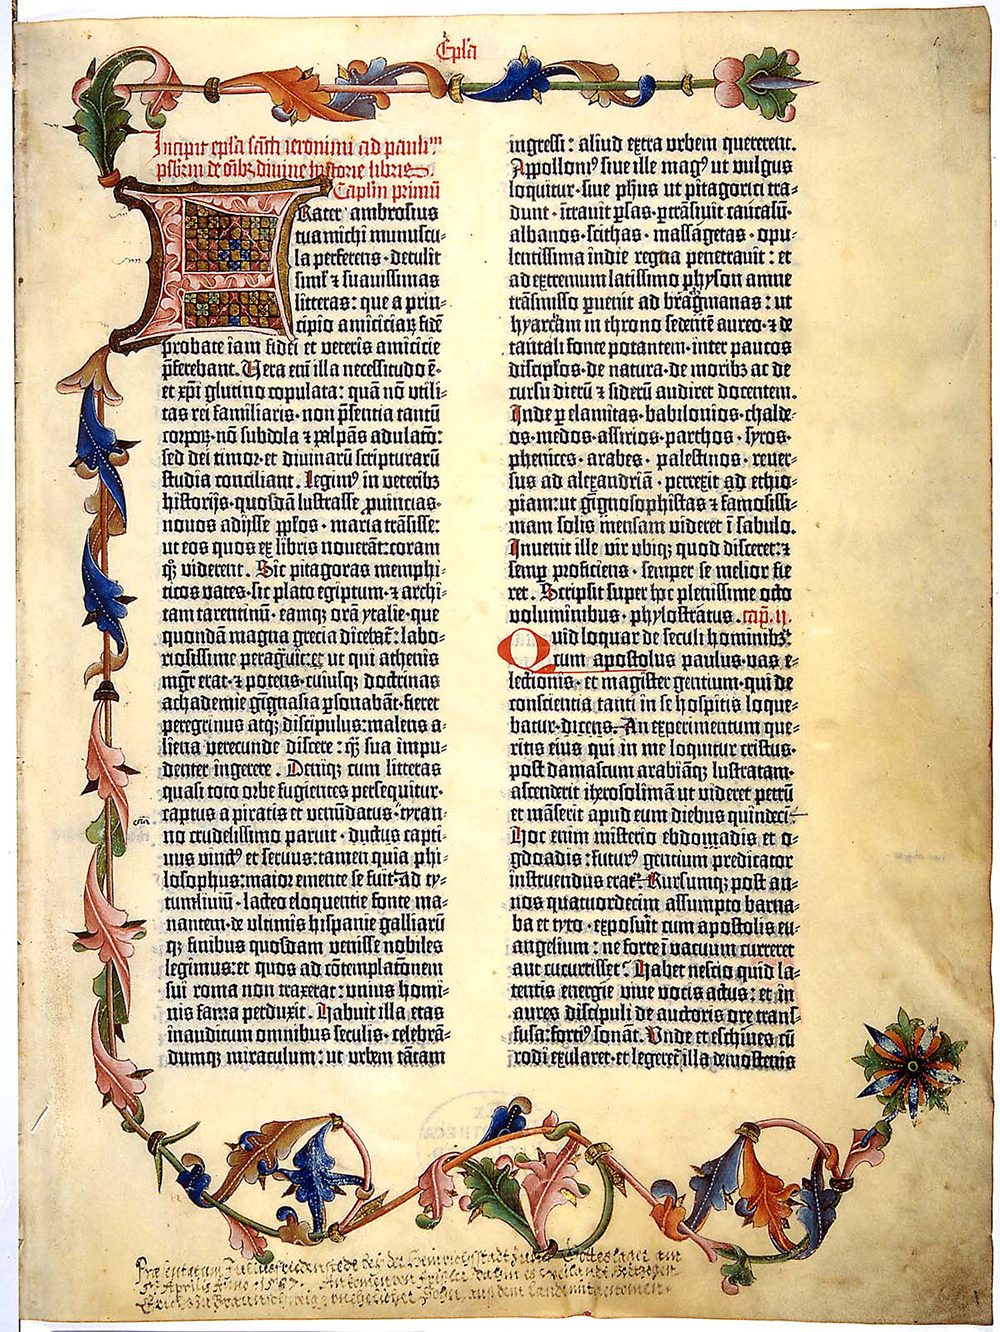 Ep̄la
Incipit ep̄la sancti ieronimi ad paulinū
p̄sb̄rm de oīb₉ divine historie libris.
Cap̄lm primū
Frater ambrosius
tua michi munuscu-
la perferens · detulit
siml̄ ⁊ suavissimas
litteras: que a prin-
cipio amiciciaꝝ fidē
probate iam fidei et veteris amicicie
p̄ferebant. Uera eni illa necessitudo ē·
et xp̄i glutino copulata: quā nō utili-
tas rei familiaris · non p̄sentia tantū
corpoꝝ· nō subdola ⁊ palpās adulatō:
sed dei timor· et divinarū scripturarū
studia conciliant. Legimꝰ in veterib₉
historijs· quosdā lustrasse ꝓuincias·
nouos adijsse pp̄los · maria trāsisse:
ut eos quos ex libris nouerāt: coram
qq̄ viderent . Sic pitagoras memphi-
ticos vates· sic plato egiptum· ⁊ archi-
tam tarentinū· eamqꝫ orā ytalie· que
quondā magna grecia diceba̅t: labo-
riosissime peragrauit: et ut qui athenis
mg̅r erat· ⁊ potens· cuiusqꝫ doctrinas
achademie gig̅nasia ꝑsonabāt· fieret
peregrinus atqꝫ discipulus: malens a-
liena verecunde discere: qꝫ sua impu-
denter ingerere . Deniqꝫ cum litteras
quasi toto orbe fugientes persequitur·
captus a piratis et venūdatus· tyran-
no crudelissimo paruit · ductus capti-
uus vinctꝰ et seruus: tamen quia phi-
losophus: maior emente se fuit· ad ty-
tumliuiū · lacteo eloquentie fonte ma-
nantem· de ultimis hispanie galliarū
qꝫ finibus quosdam venisse nobiles
legimus: et quos ad cōtemplatōnem
sui roma non traxerat: unius homi-
nis fama perduxit. Habuit illa etas
inauditum omnibus seculis· celebrā-
dumqꝫ miraculum: ut urbem tātam
ingressi: aliud extra urbem quererent.
Appollonꝰ siue ille magꝰ ut vulgus
loquitur· siue ph̄us ut pitagorici tra-
dunt · ītrauit ꝑsas· ꝑtrāsiuit caucasū·
albanos· scithas · massagetas · opu-
lentissima indie regna penetrauit : et
ad extremum latissimo physon amne
trāsmisso ꝑuenit ad bragmanas: ut
hyarcam in throno sedentē aureo· ⁊ de
tantali fonte potantem· inter paucos
discip̄los· de natura· de morib₉ ac de
cursu dierū ⁊ siderū audiret docentem.
Inde ꝑ elamitas· babilonios· chalde-
os· medos· assirios· parthos · syros·
phenices · arabes · palestinos · reuer-
sus ad alexandriā · perrexit ad ethio-
piam: ut gig̅nosophistas ⁊ famosissi-
mam solis mensam videret ī sabulo.
Inuenit ille vir ubiqꝫ quod disceret: ⁊
semꝑ proficiens · semper se melior fie
ret . Scripsit super hoc plenissime octo
voluminibus · phylostratus . cap̄. ii.
Quid loquar de seculi hominib₉:
cum apostolus paulus· vas e-
lectionis· et magister gentium· qui de
conscientia tanti in se hospitis loque-
batur· dicens. An experimentum que-
ritis eius qui in me loquitur cristus·
post damascum arabiāqꝫ lustratam·
ascenderit iherosolimā ut videret petrū
et māserit apud eum diebus quindeci̅·
Hoc enim misterio ebdomadis et o-
gdoadis : futurꝰ gentium predicator
instruendus erat. Rursumqꝫ post an-
nos quatuordecim assumpto barna-
ba et tyto · exposuit cum apostolis eu-
angelium : ne forte ī vacuum curreret
aut cucurrisset. Habet nescio quid la-
tentis energie viue vocis actus: et in
aures discipuli de auctoris ore trans-
fusa: fortiꝰ sonāt. Unde et eschines cū
rodi exularet· et legeret illa demostenis